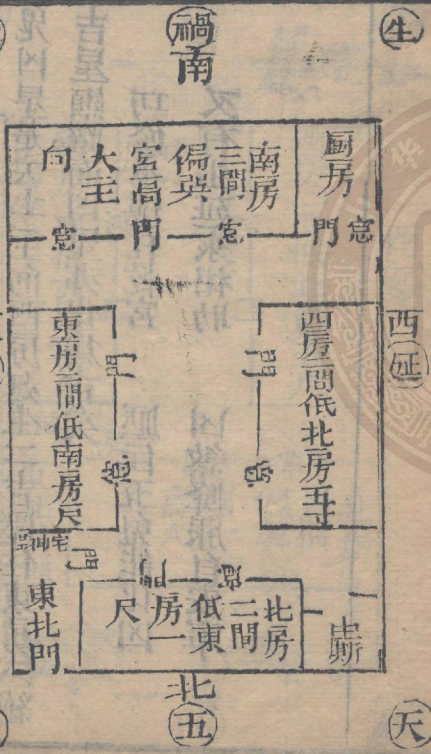 禍
南
生
厨房
窓
門
南房
三間
偏巽
宮高
大主
向
窓
門
窓
西
延
西房二間低北房五寸
門
窓
東房二間低南房尺
門
窓
宅神
門
東北門
門
窓
北房
二間
低東
房一
尺
北
五
天